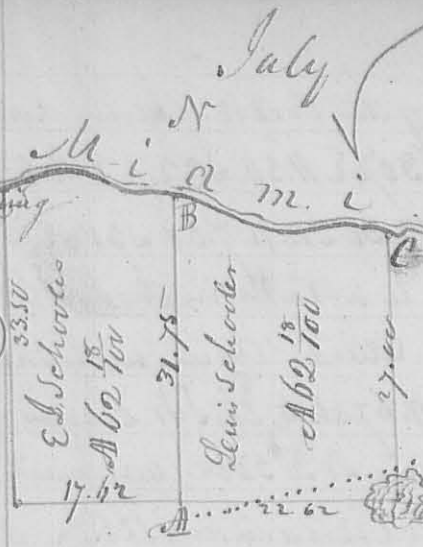 July
N
Miami
B
C
33.50
E J Schooler
A 62 18/100
31.75
Lewis Schooler
A 62 18/100
17.62
A
22 62